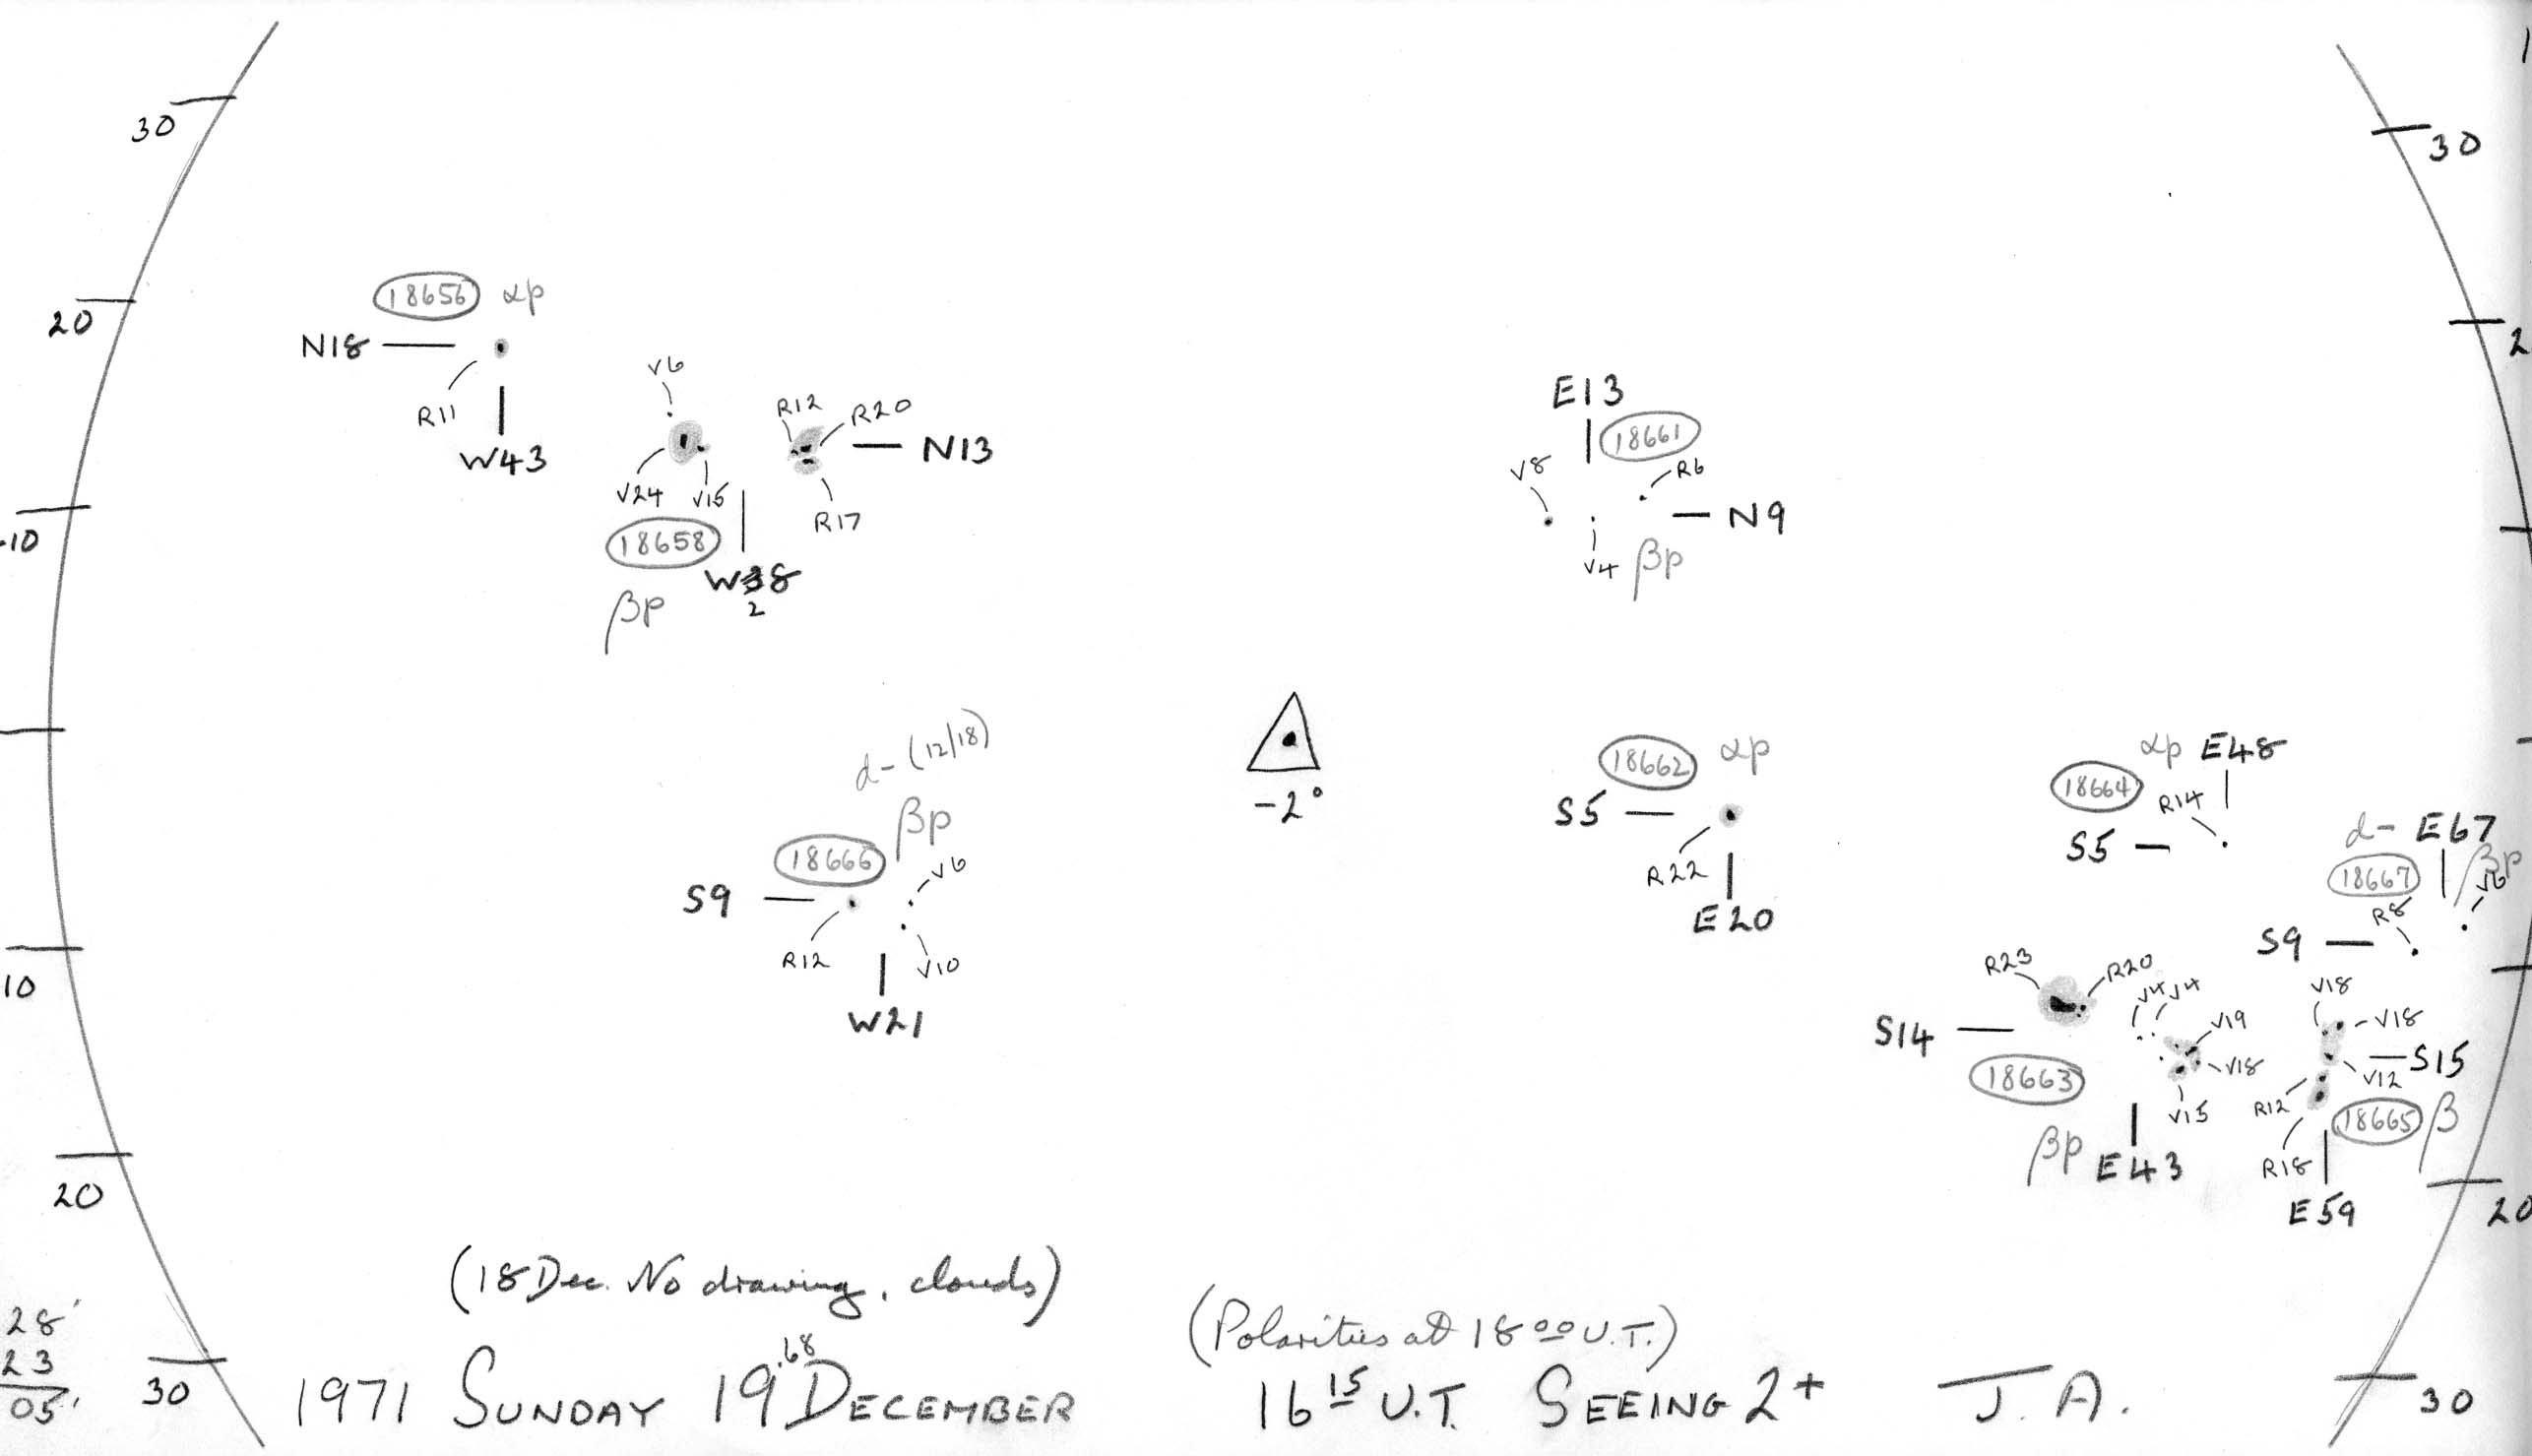 30
30
18656 αp
20
N18
2
R11
V6
E13
R12
R20
W43
N13
18661
V8
R6
V24 V15
R17
N9
10
18658
V4 βp
W38
2
βp
d- (12/18)
18662 αp
αp E48
-2°
S5
18664
R14
βp
d- E67
S5
18666
V6
R22
18667
βp
V6
S9
E20
R8
R12
V10
S9
10
R23
R20
V18
W21
V4 V4
V19
V18
S14
S15
V18
V12
18663
V15
R12
18665 β
βp E43
R18
20
E59
20
(18 Dec. No drawing, clouds)
28
(Polarities at 18 00 U.T.)
23
.68
05
30
1971 SUNDAY 19 DECEMBER
16 15 U.T. SEEING 2+
J.A.
30